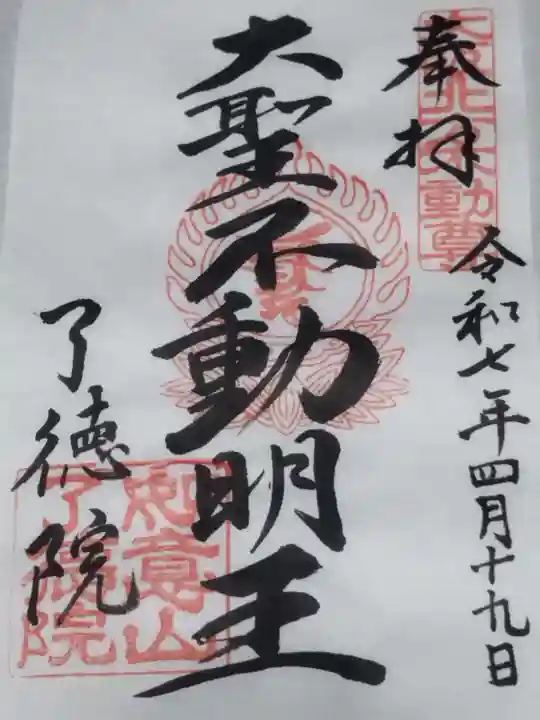 奉拝
令和七年四月十九日
大聖不動明王
了徳院
如意山
了徳院